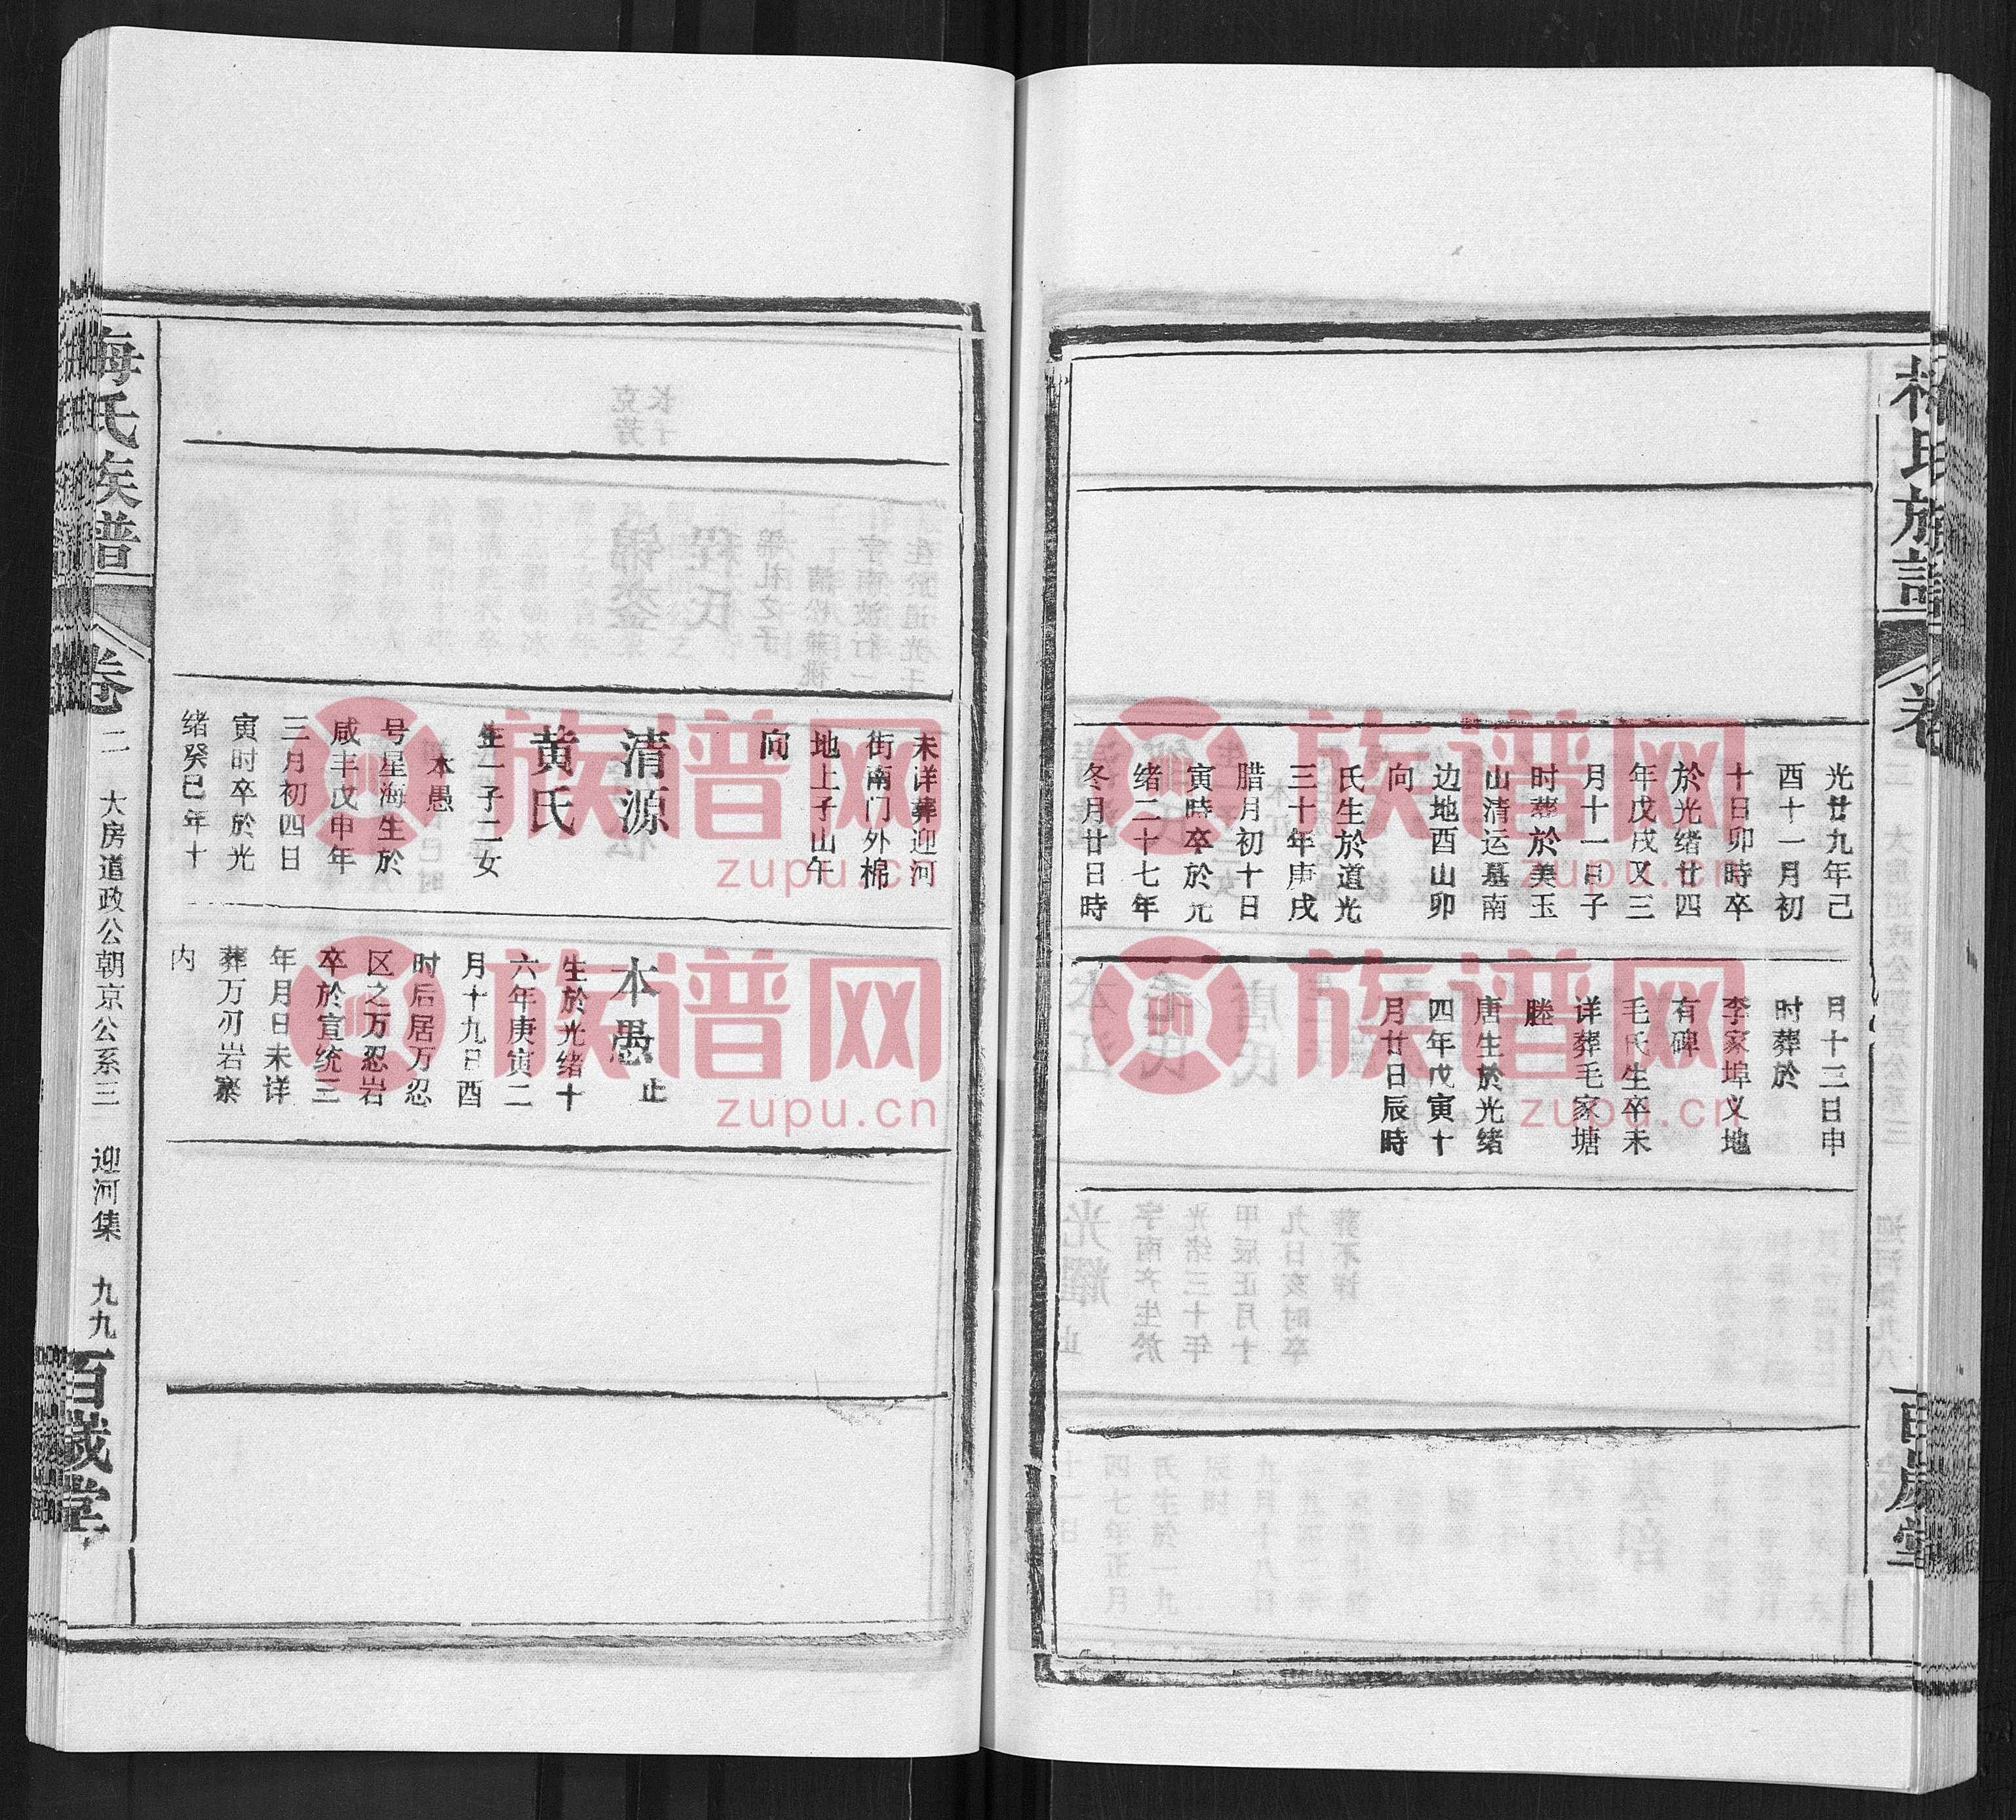 光廿九年己
酉十一月初
十日卯時卒
於光绪廿四
年戊戌又三
月十一日子
时葬於美玉
山清运墓南
边地酉山卯
向
氏生於道光
三十年庚戌
腊月初十日
寅時卒於光
绪二十七年
冬月廿日時
月十三日申
时葬於
李家埠义地
有碑
毛氏生卒未
详葬毛家塘
塍
唐生於光绪
四年戊寅十
月廿日辰時
未详葬迎河
街南门外棉
地上子山午
向
清源
黄氏
生一子二女
本愚
号星海生於
咸丰戊申年
三月初四日
寅时卒於光
绪癸巳年十
本愚 止
生於光绪十
六年庚寅二
月十九日酉
时后居万忍
区之万忍岩
卒於宣统三
年月日未详
葬万刃岩寨
内
梅氏族谱
卷二
大房道政公朝京公系三
迎河集
九九
百岁堂
族谱网
zupu.cn
族谱网
zupu.cn
族谱网
zupu.cn
族谱网
zupu.cn